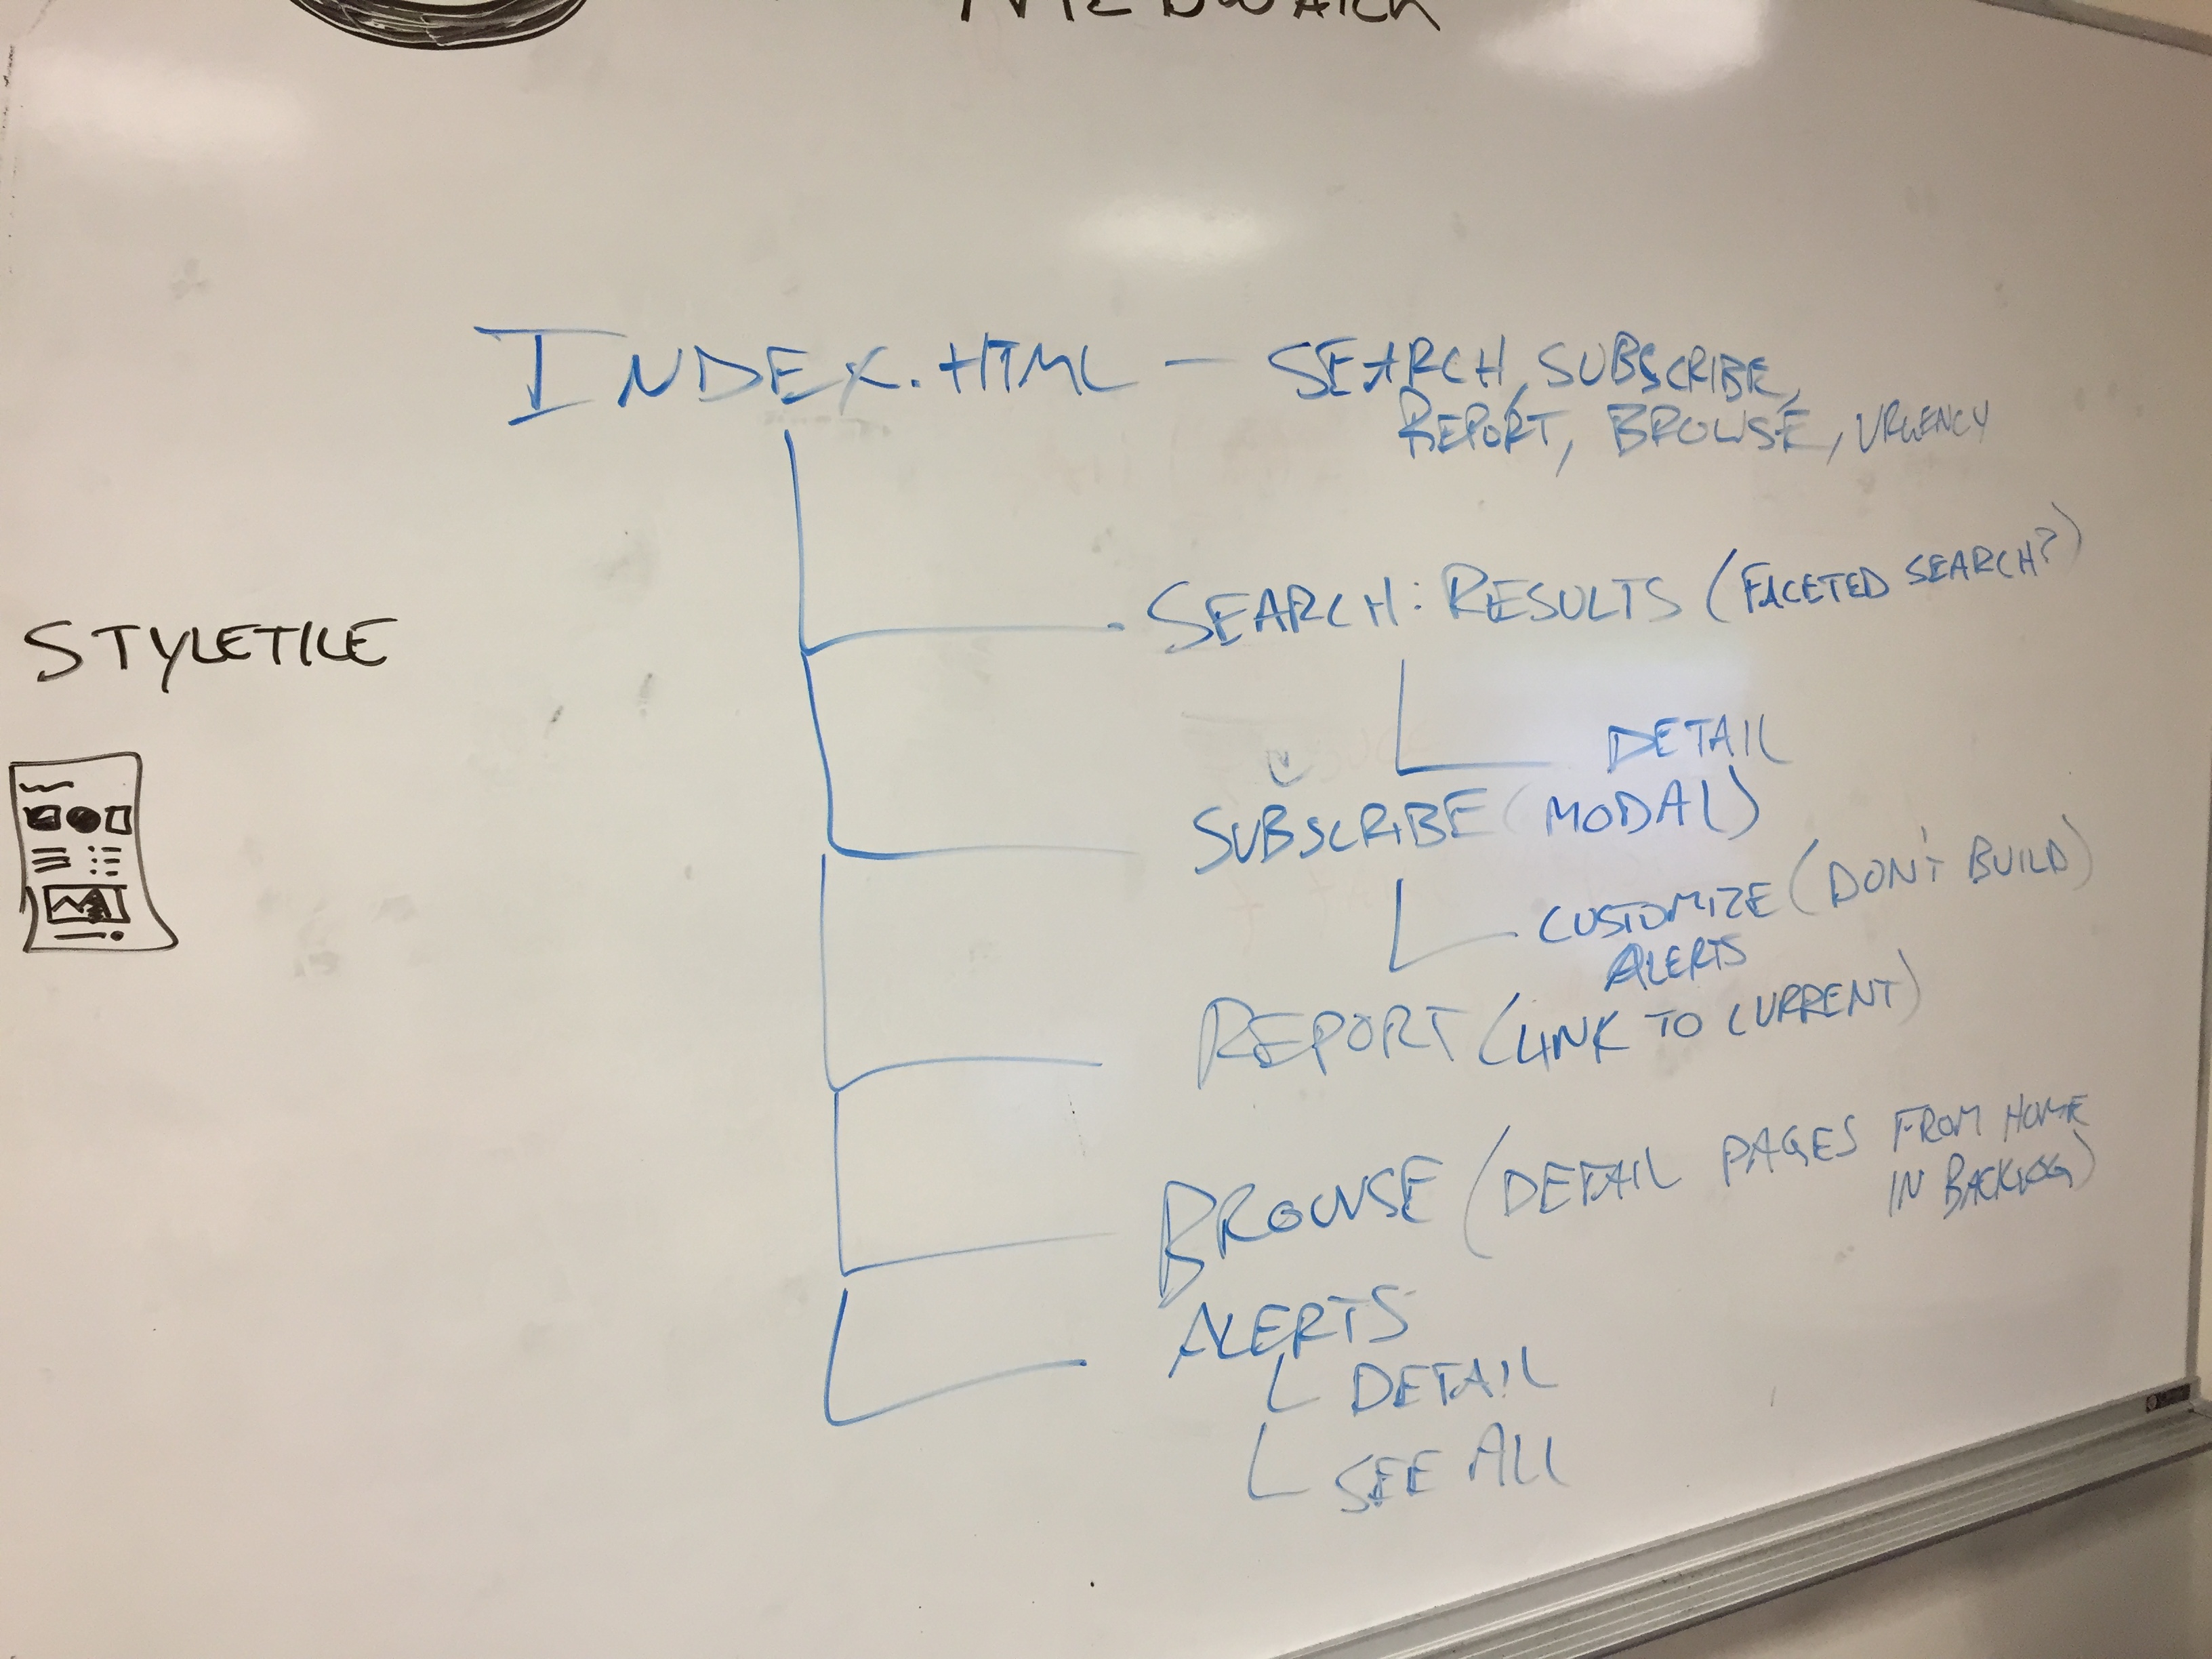 MEDWATCH
INDEX.HTML — SEARCH, SUBSCRIBE,
REPORT, BROWSE, URGENCY
SEARCH: RESULTS (FACETED SEARCH?)
STYLETILE
DETAIL
SUBSCRIBE (MODAL)
CUSTOMIZE (DON'T BUILD)
ALERTS
REPORT (LINK TO CURRENT)
BROWSE (DETAIL PAGES FROM HOME
IN BACKLOG)
ALERTS
DETAIL
SEE ALL